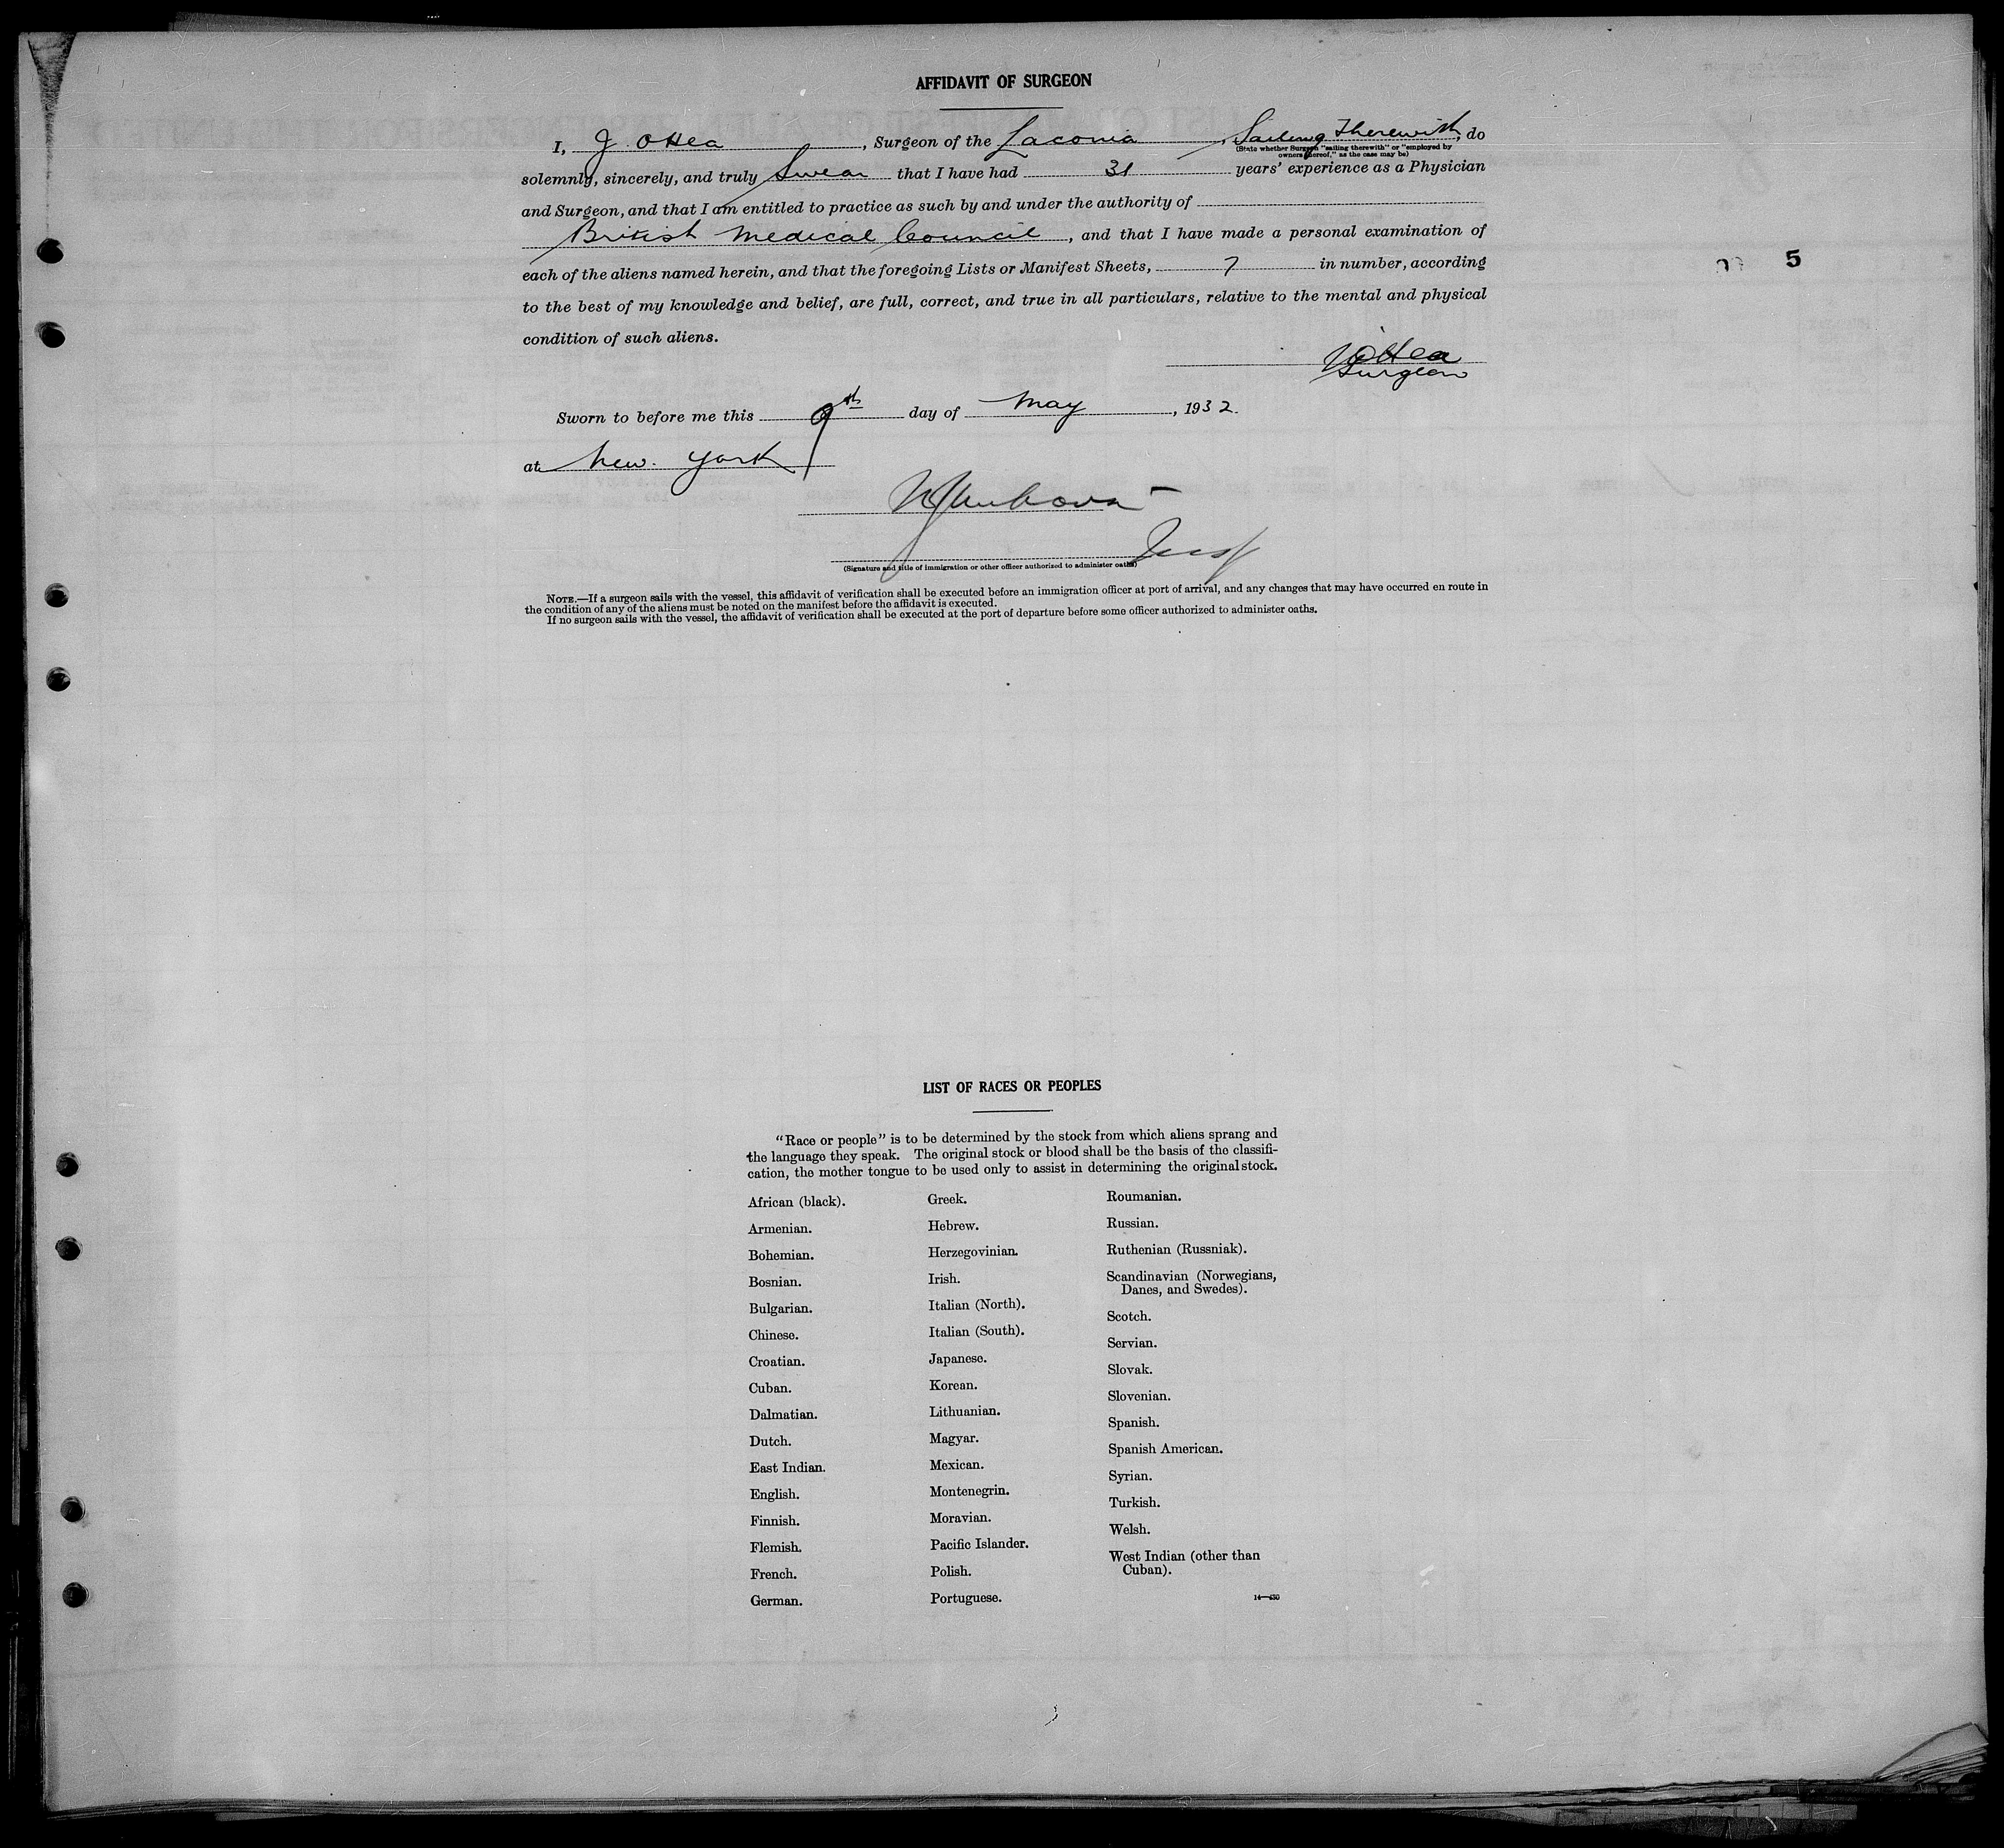 AFFIDAVIT OF SURGEON
I, J. O'Hea, Surgeon of the Laconia, Sailing Therewith, do
(State whether Surgeon "sailing therewith" or "employed by
owners thereof," as the case may be)
solemnly, sincerely, and truly Swear that I have had 31 years' experience as a Physician
and Surgeon, and that I am entitled to practice as such by and under the authority of
British Medical Council, and that I have made a personal examination of
each of the aliens named herein, and that the foregoing Lists or Manifest Sheets, 7 in number, according
5
to the best of my knowledge and belief, are full, correct, and true in all particulars, relative to the mental and physical
condition of such aliens.
J O'Hea
Surgeon
Sworn to before me this 9th day of May, 1932.
at New York
(Signature and title of immigration or other officer authorized to administer oaths)
NOTE.—If a surgeon sails with the vessel, this affidavit of verification shall be executed before an immigration officer at port of arrival, and any changes that may have occurred en route in
the condition of any of the aliens must be noted on the manifest before the affidavit is executed.
If no surgeon sails with the vessel, the affidavit of verification shall be executed at the port of departure before some officer authorized to administer oaths.
LIST OF RACES OR PEOPLES
"Race or people" is to be determined by the stock from which aliens sprang and
the language they speak. The original stock or blood shall be the basis of the classifi-
cation, the mother tongue to be used only to assist in determining the original stock.
African (black).
Armenian.
Bohemian.
Bosnian.
Bulgarian.
Chinese.
Croatian.
Cuban.
Dalmatian.
Dutch.
East Indian.
English.
Finnish.
Flemish.
French.
German.
Greek.
Hebrew.
Herzegovinian.
Irish.
Italian (North).
Italian (South).
Japanese.
Korean.
Lithuanian.
Magyar.
Mexican.
Montenegrin.
Moravian.
Pacific Islander.
Polish.
Portuguese.
Roumanian.
Russian.
Ruthenian (Russniak).
Scandinavian (Norwegians,
Danes, and Swedes).
Scotch.
Servian.
Slovak.
Slovenian.
Spanish.
Spanish American.
Syrian.
Turkish.
Welsh.
West Indian (other than
Cuban).
14—430